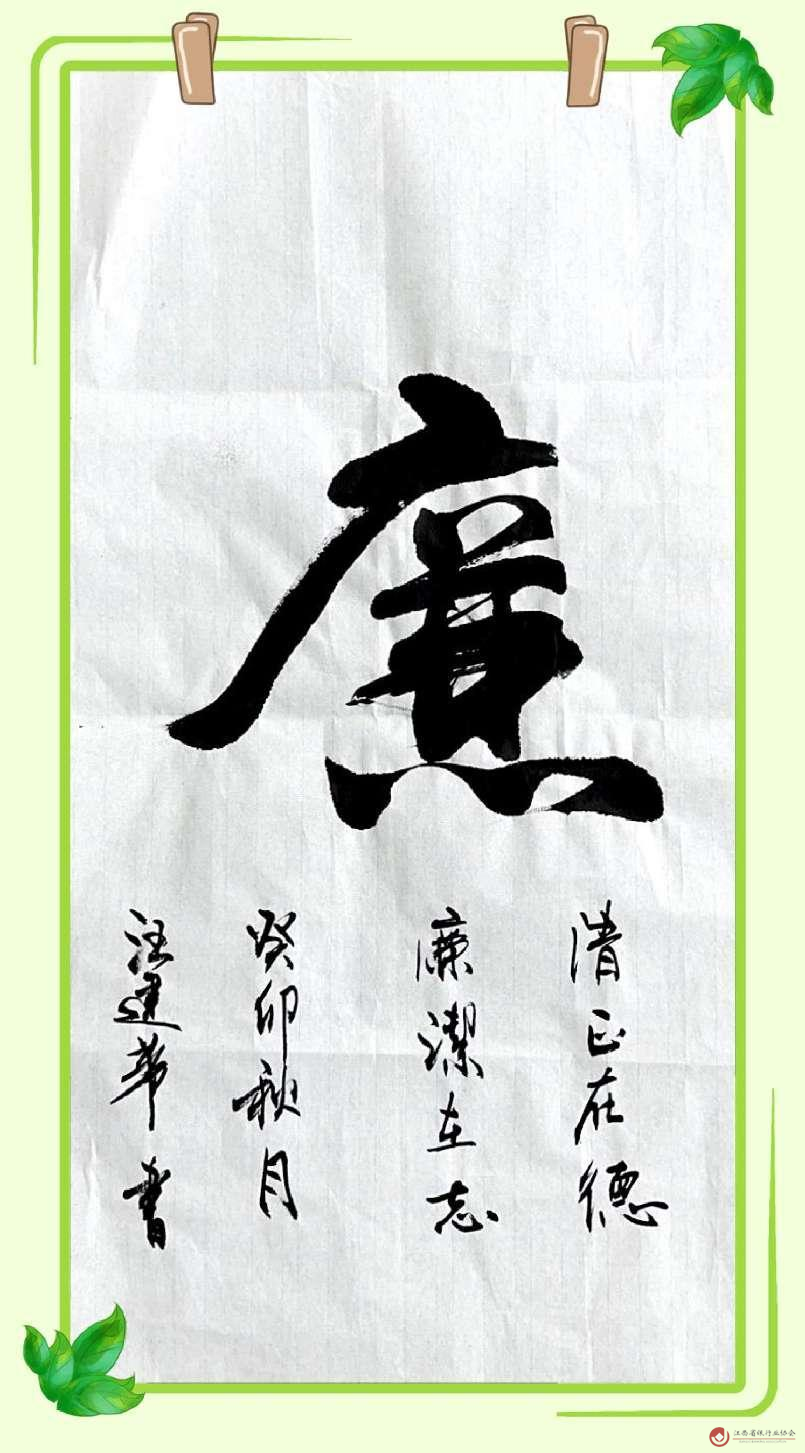 廉
清正在德
廉潔在志
癸卯秋月
汪建華書
江西省银行业协会